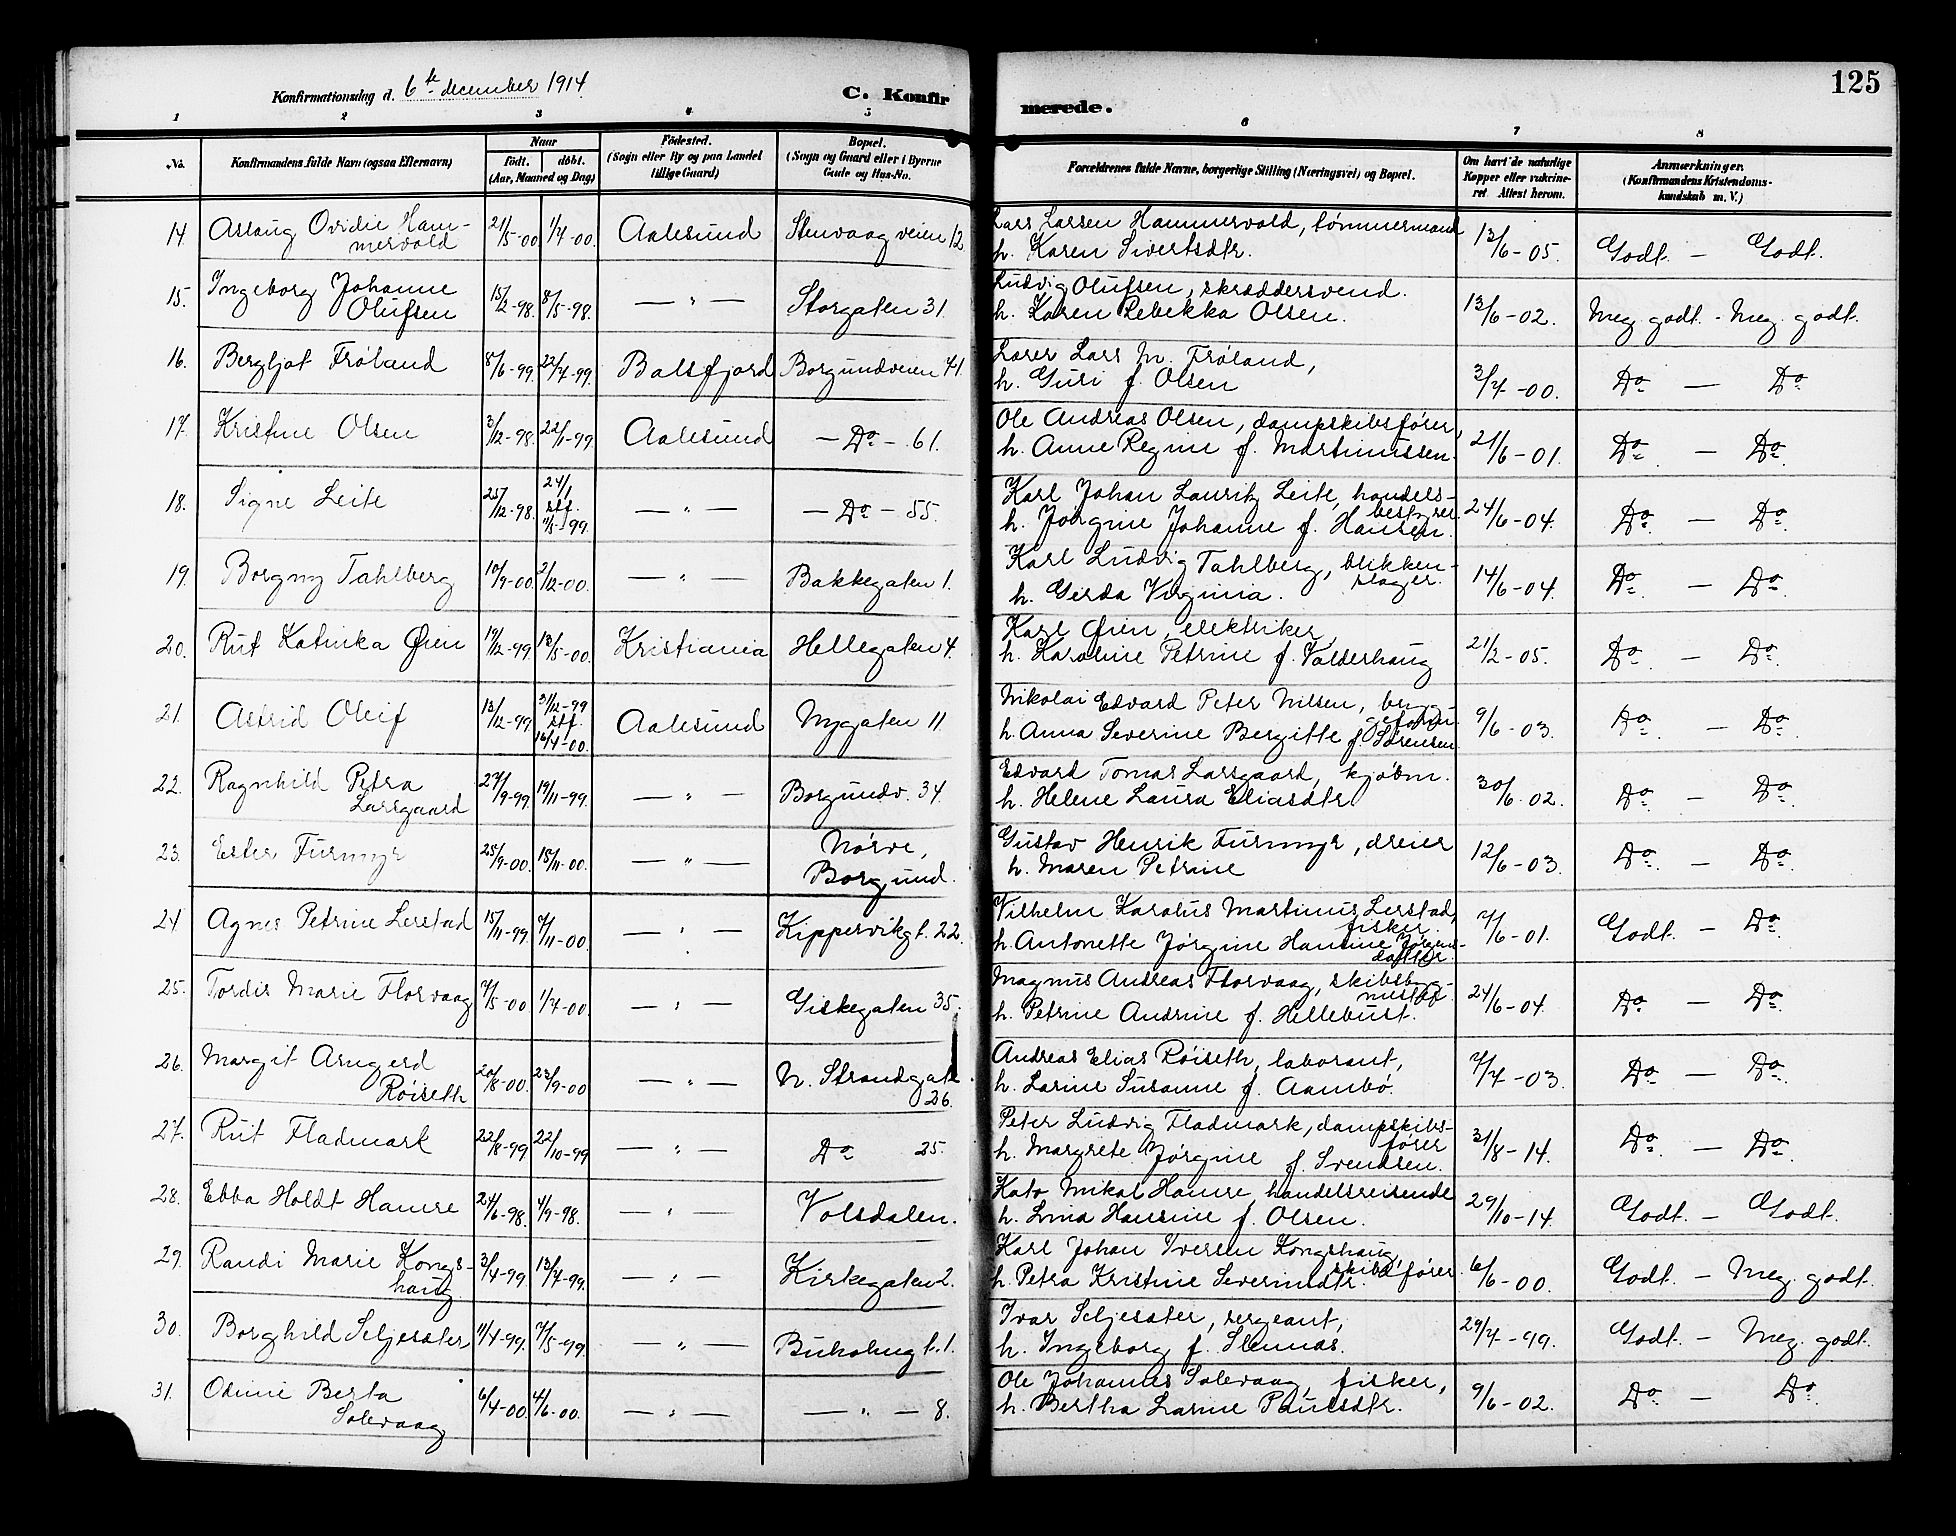 125
Konfirmationsdag d. 6te december 1914
C. Konfirmerede.
1 2 3 4 5 6 7 8
No.
Konfirmandens fulde Navn (ogsaa Efternavn)
Naar
født. døbt.
(Aar, Maaned og Dag)
Fødested.
(Sogn eller By og paa Landet
tillige Gaard)
Bopæl.
(Sogn og Gaard eller i Byerne
Gade og Hus-No.
Forældrenes fulde Navne, borgerlige Stilling (Næringsvei) og Bopæl.
Om havt de naturlige
Kopper eller vakcine-
ret. Attest herom.
Anmærkninger.
(Konfirmandens Kristendoms-
kundskab m. V.)
14. Aslaug Ovidie Ham-
mervold 21/5-00 1/7-00. Aalesund Stenvaagveien 12
Lars Larsen Hammervold, tømmermand
h. Karen Sivertsdtr. 13/6-05. Godt. — Godt.
15. Ingeborg Johanne
Olufsen 15/2-98. 8/5-98. — " — Storgaten 31.
Ludvig Olufsen, skræddersvend.
h. Karen Rebekka Olsen. 13/6-02. Meg. godt. - Meg. godt.
16. Bergljot Frøland 8/6-99. 23/7-99. Balsfjord Borgundveien 41.
Lærer Lars M. Frøland,
h. Guri f. Olsen 3/7-00. Do. — Do.
17. Kristine Olsen 3/12-98. 22/1-99. Aalesund — Do — 61.
Ole Andreas Olsen, dampskibsfører,
h. Anne Regine f. Martinussen. 21/6-01. Do. — Do.
18. Signe Leite 25/12-98. 24/1 stf. 11/5-99. — " — — Do — 55.
Karl Johan Lauritz Leite, handels-
bestyrer.
h. Jørgine Johanne f. Hansen. 24/6-04. Do. — Do.
19. Borgny Tahlberg 10/9-00. 2/12-00. — " — Bakkegaten 1.
Karl Ludvig Tahlberg, blikken-
slager.
h. Gerda Virginia. 14/6-04. Do. — Do.
20. Rut Katinka Øien 17/12-99. 13/5-00. Kristiania Hellegaten 4.
Karl Øien, elektriker,
h. Karoline Petrine f. Valderhaug 21/2-05. Do. — Do.
21. Astrid Oleif 13/12-99. 31/12-99 stf. 16/4-00. Aalesund Nygaten 11.
Nikolai Edvard Peter Nilsen,
h. Anna Severine Bergitte f. Sørensen 9/6-03. Do. — Do.
22. Ragnhild Petra
Larsgaard 27/9-99. 19/11-99. — " — Borgundv. 34.
Edvard Tomas Larsgaard, kjøbm.
h. Helene Laura Eliasdtr 30/6-02. Do. — Do.
23. Ester Furmyr 25/9-00. 15/11-00. — " — Nørve,
Borgund.
Gustav Henrik Furmyr, dreier
h. Maren Petrine 12/6-03. Do. — Do.
24. Agnes Petrine Lerstad 15/11-99. 7/11-00. — " — Kippervikgt. 22.
Vilhelm Karolus Martinus Lerstad,
fisker.
h. Antonette Jørgine Hansine Jørgens-
datter. 7/6-01. Godt — Do.
25. Tordis Marie Florvaag 7/5-00 1/7-00. — " — Giskegaten 35.
Magnus Andreas Florvaag, skibsbyg-
mester
h. Petrine Andrine f. Hellebust. 24/6-04. Do. — Do.
26. Margit Arngerd
Røiseth 20/8-00. 23/9-00 — " — N. Strandgate
26.
Andreas Elias Røiseth, laborant,
h. Larine Susanne f. Aambø. 7/7-03. Do. — Do.
27. Rut Fladmark 22/8-99. 22/10-99 — " — Do 25.
Peter Ludvig Fladmark, dampskibs-
fører
h. Margrete Jørgine f. Svendsen. 31/8-14. Do. — Do.
28. Ebba Holdt Hamre 24/6-98. 4/9-98. — " — Volsdalen.
Kato Mikal Hamre, handelsreisende
h. Lina Hansine f. Olsen. 29/10-14. Godt. — Godt.
29. Randi Marie Kongs-
haug 3/4-99. 13/7-99. — " — Kirkegaten 2.
Karl Johan Iversen Kongshaug,
skibsfører.
h. Petra Kristine Severinsdtr. 6/6-00. Godt. — Meg. godt.
30. Borghild Seljesæter 11/4-99. 7/5-99. — " — Buholmgt. 1.
Ivar Seljesæter, sergeant,
h. Ingeborg f. Stennæs. 29/7-99. Godt. — Meg. godt.
31. Odine Berta
Solevaag 6/4-00. 4/6-00. — " — — " — 8.
Ole Johannes Solevaag, fisker,
h. Bertha Larine Paulsdtr. 9/6-02. Do. — Do.